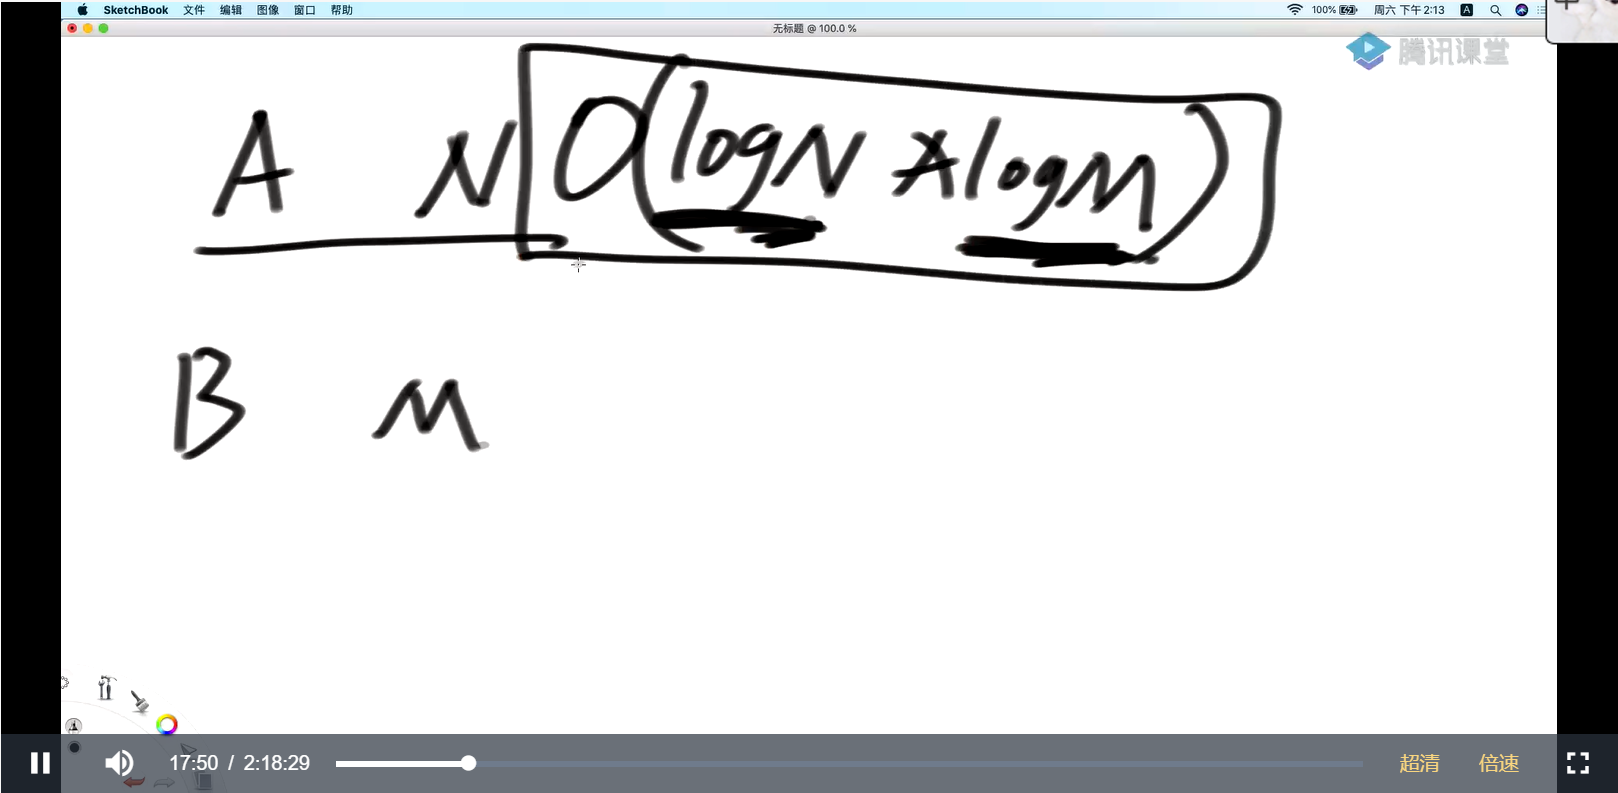 SketchBook 文件 编辑 图像 窗口 帮助 100% 周六 下午2:13 A
无标题 @ 100.0 %
腾讯课堂
A N O(logN * logM)
B M
17:50 / 2:18:29 超清 倍速